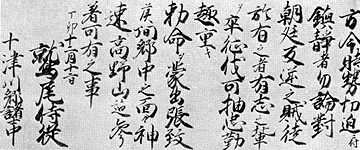 方今形勢切迫
鎮静者勿論對
朝廷反逆之賊徒
於有之者有志之輩
卒征伐可抽忠勤
趣重
勅命ヲ蒙出張致
候間郡中之面々神
速高野山迄参
着可有之事
丁卯十二月十二日
鷲尾侍従
十津川郷中